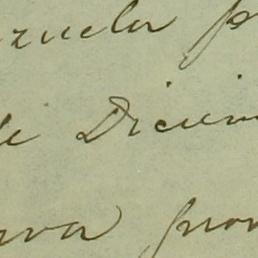 zuela p
de Diciem
rva pron